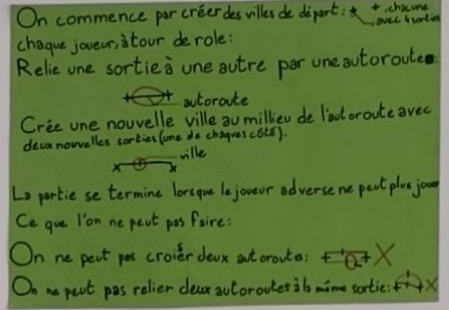 On commence par créer des villes de départ : + + , chacune
avec 4 sorties
chaque joueur, à tour de role :
Relie une sortie à une autre par une autoroute.
autoroute
Crée une nouvelle ville au millieu de l'autoroute avec
deux nouvelles sorties (une de chaques côté).
ville
La partie se termine lorsque le joueur adverse ne peut plus jouer
Ce que l'on ne peut pas faire :
On ne peut pas croisér deux autoroute :
On ne peut pas relier deux autoroutes à la même sortie :